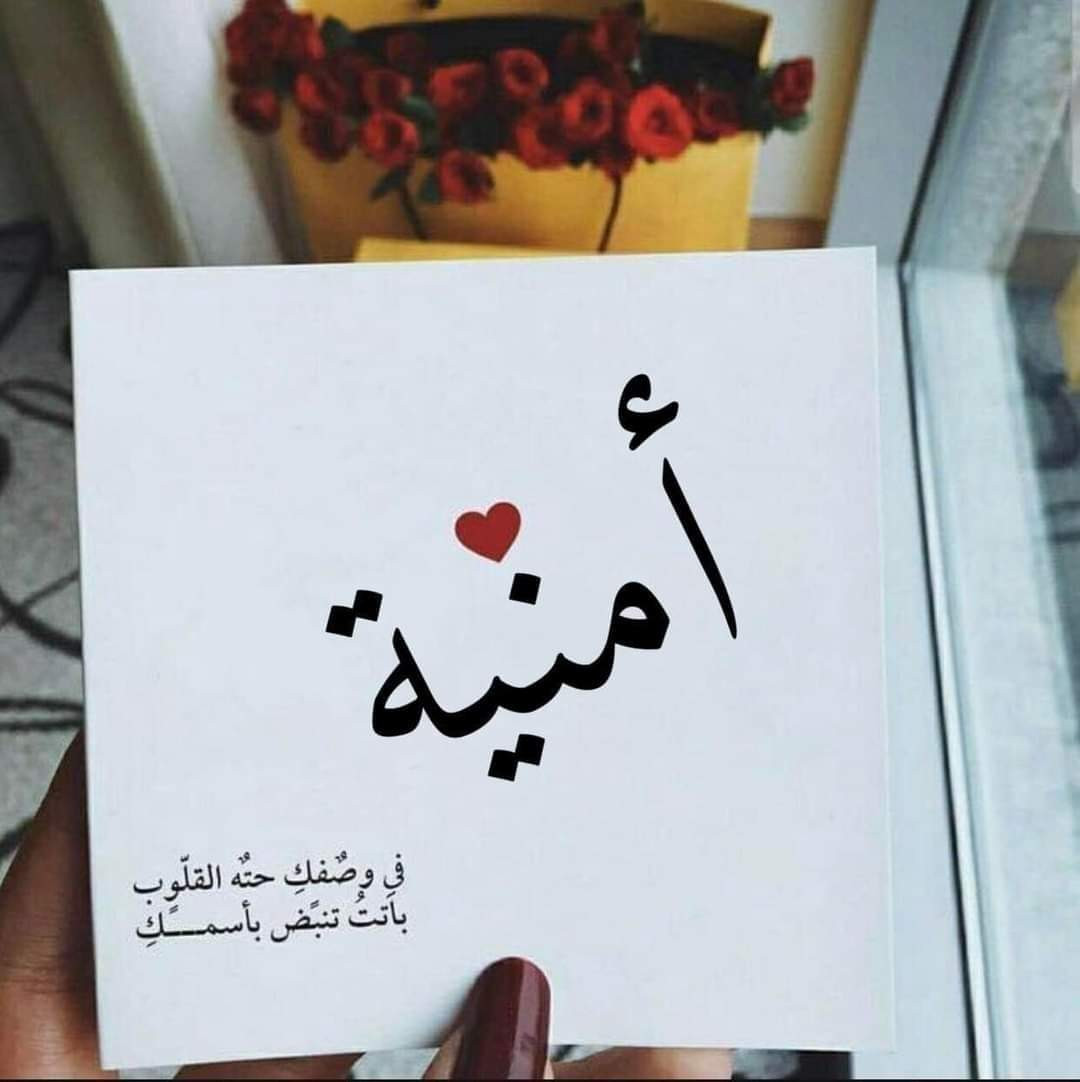 أمنية
في وصٌفكِ حتهٌ القلّوب
باتتُ تنبًض بأسمـــكًِ